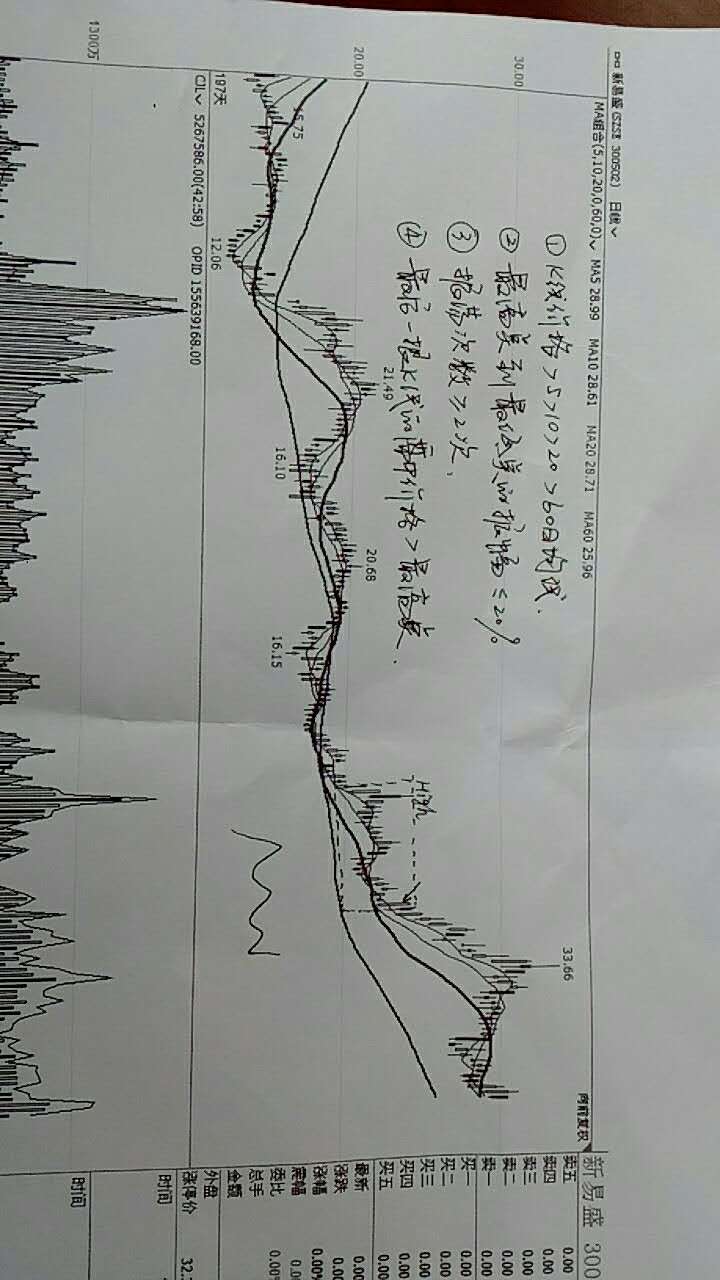 新易盛 (SZSE 300502) 日线
MA组合(5,10,20,0,60,0) MA5 28.99 MA10 28.61 MA20 28.71 MA60 25.96
30.00
20.00
① K线价格>5>10>20>60日均线.
② 最高点到最低点的振幅≤20%
③ 振荡次数≥2次.
④ 最后一根K线的当日价格>最高点.
15.75
12.06
21.49
16.10
20.68
16.15
High
33.66
197天
CJL 5267586.00(42:58) OPID 155639168.00
1300万
向前复权
新易盛 300
卖五 0.00
卖四 0.00
卖三 0.00
卖二 0.00
卖一 0.00
买一 0.00
买二 0.00
买三 0.00
买四 0.00
买五 0.00
最新 0.00
涨跌 0.00
涨幅 0.00%
震幅 0.00
委比 0.00
总手
金额
外盘
涨停价 32.
时间
时间